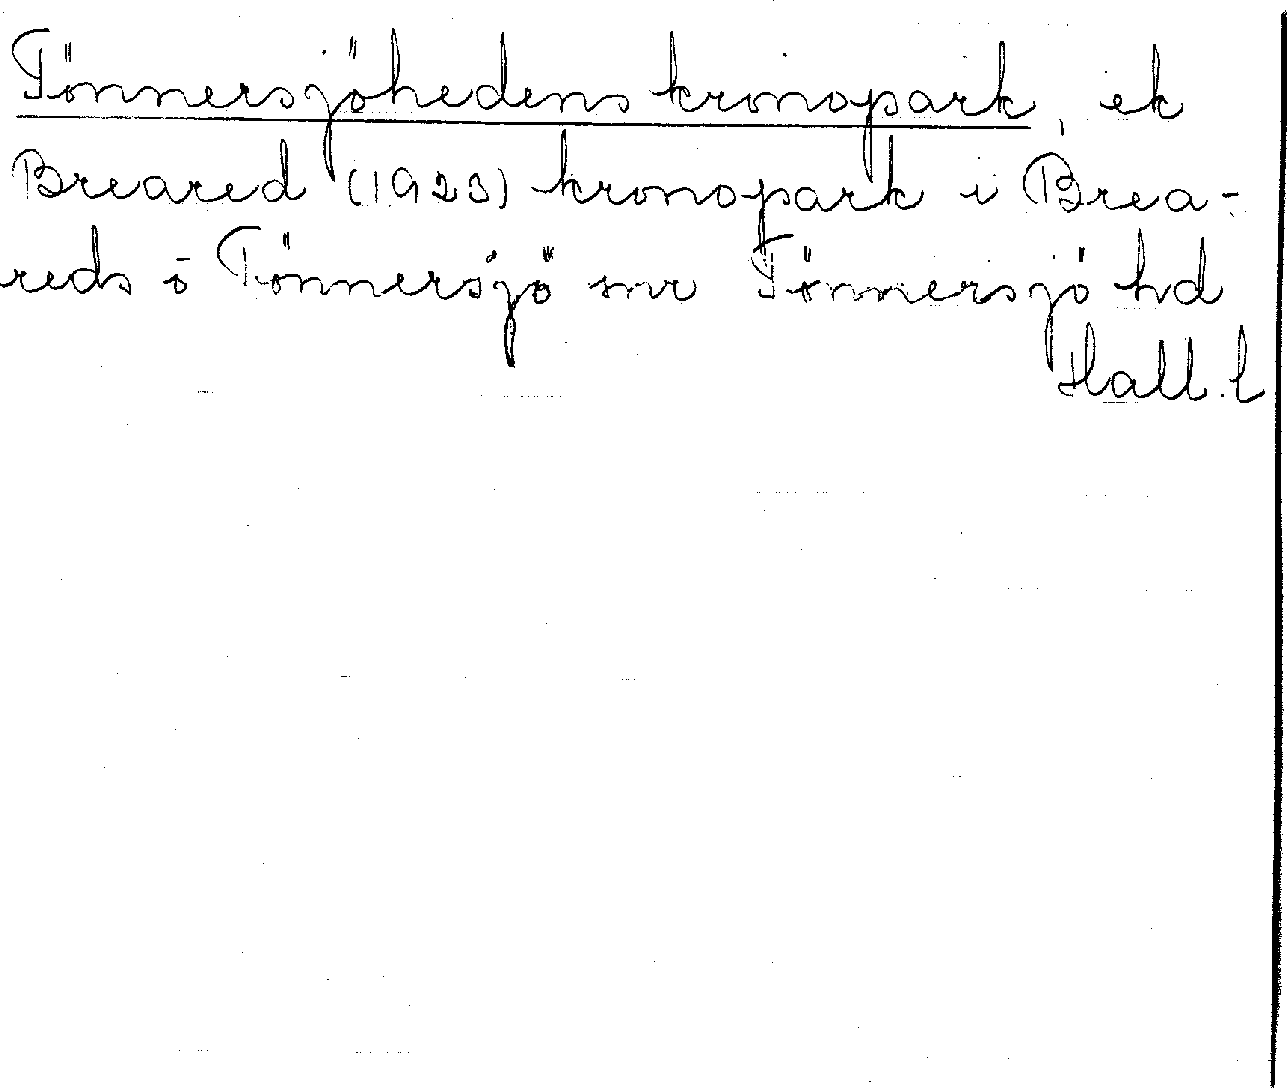 Tönnersjöhedens kronopark, ek
Breared (1923) kronopark i Brea-
reds o Tönnersjö snr Tönnersjö hd
Hall. l